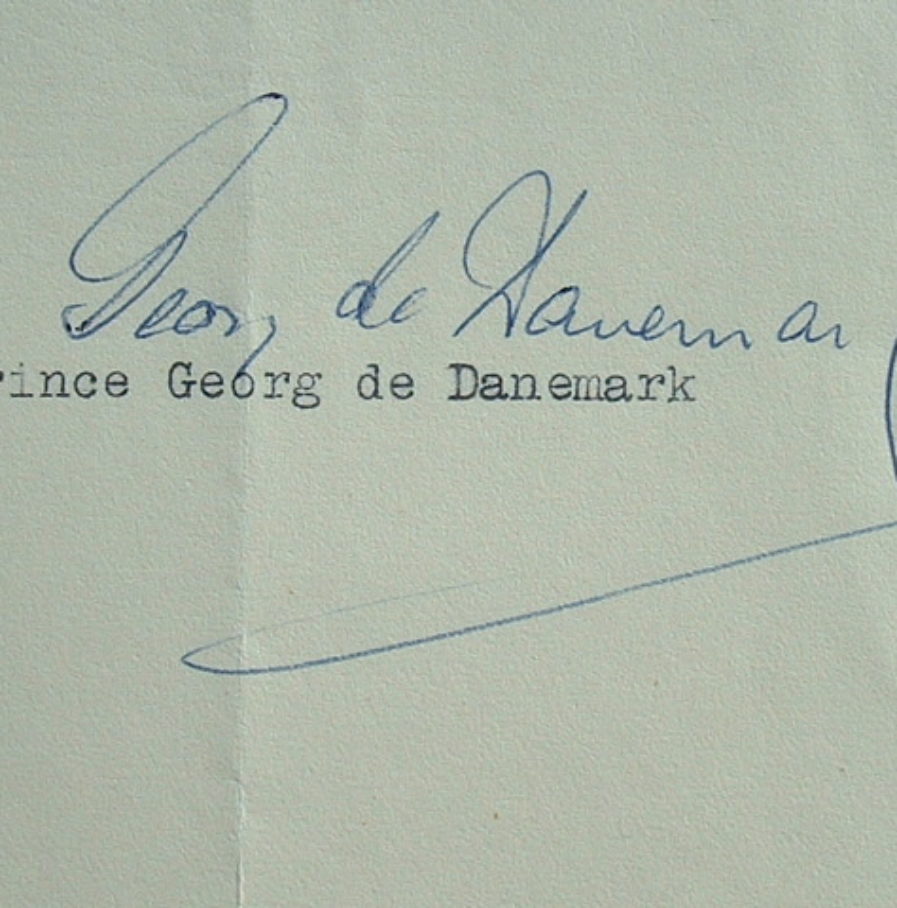 Georg de Danemar
rince Georg de Danemark